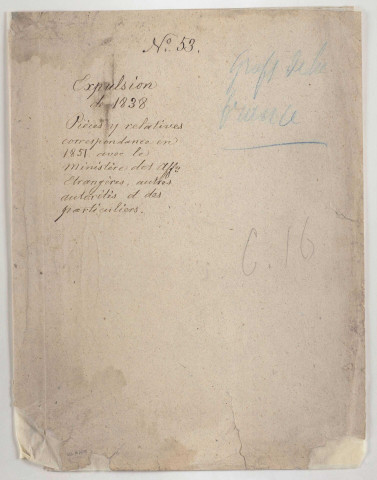 No 53.
Expulsion
de 1838
Pièces y relatives
correspondance en
1851 avec le
ministère des Affes
Etrangères, autres
autorités et des
particuliers.
de la
France
C. 16